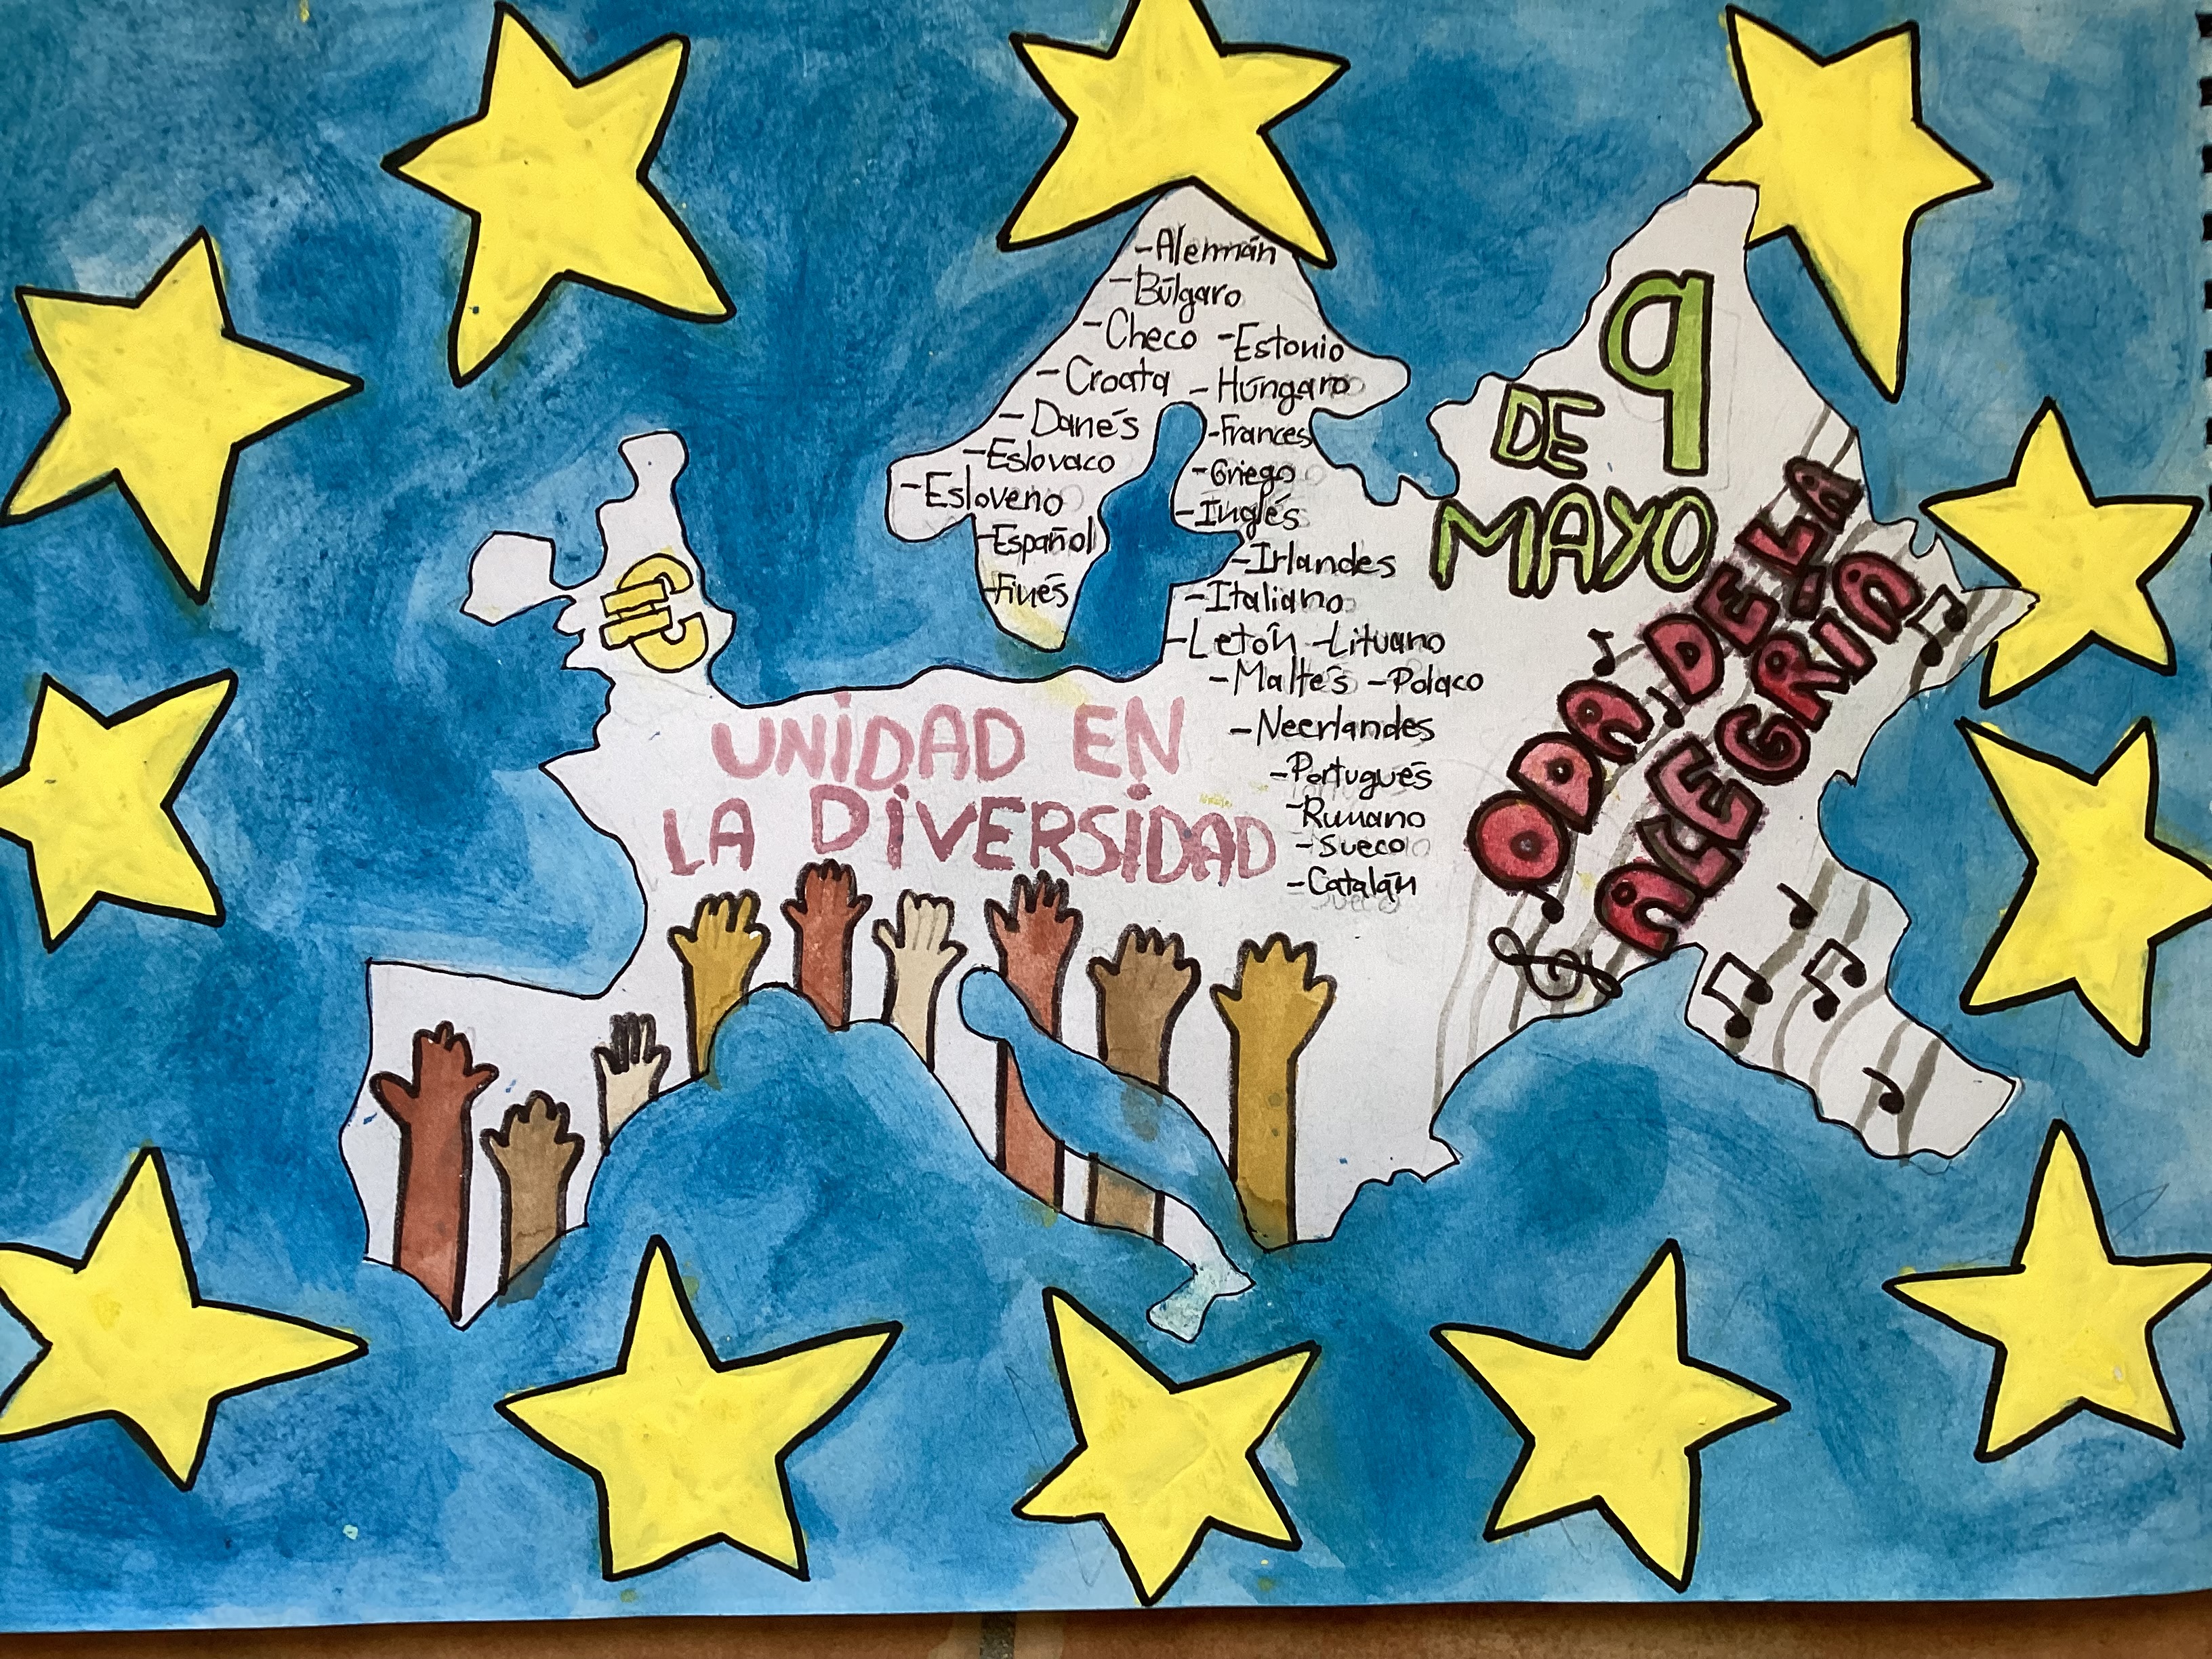 -Alemán
-Búlgaro
-Checo -Estonio
-Croata -Húngaro
-Danés -Frances
-Eslovaco -Griego
-Esloveno -Inglés
-Español -Irlandes
-Finés -Italiano
-Letón -Lituano
-Maltés -Polaco
-Neerlandes
-Portugués
-Rumano
-Sueco
-Catalán
€
UNIDAD EN
LA DIVERSIDAD
9
DE
MAYO
ODA DE LA
ALEGRIA